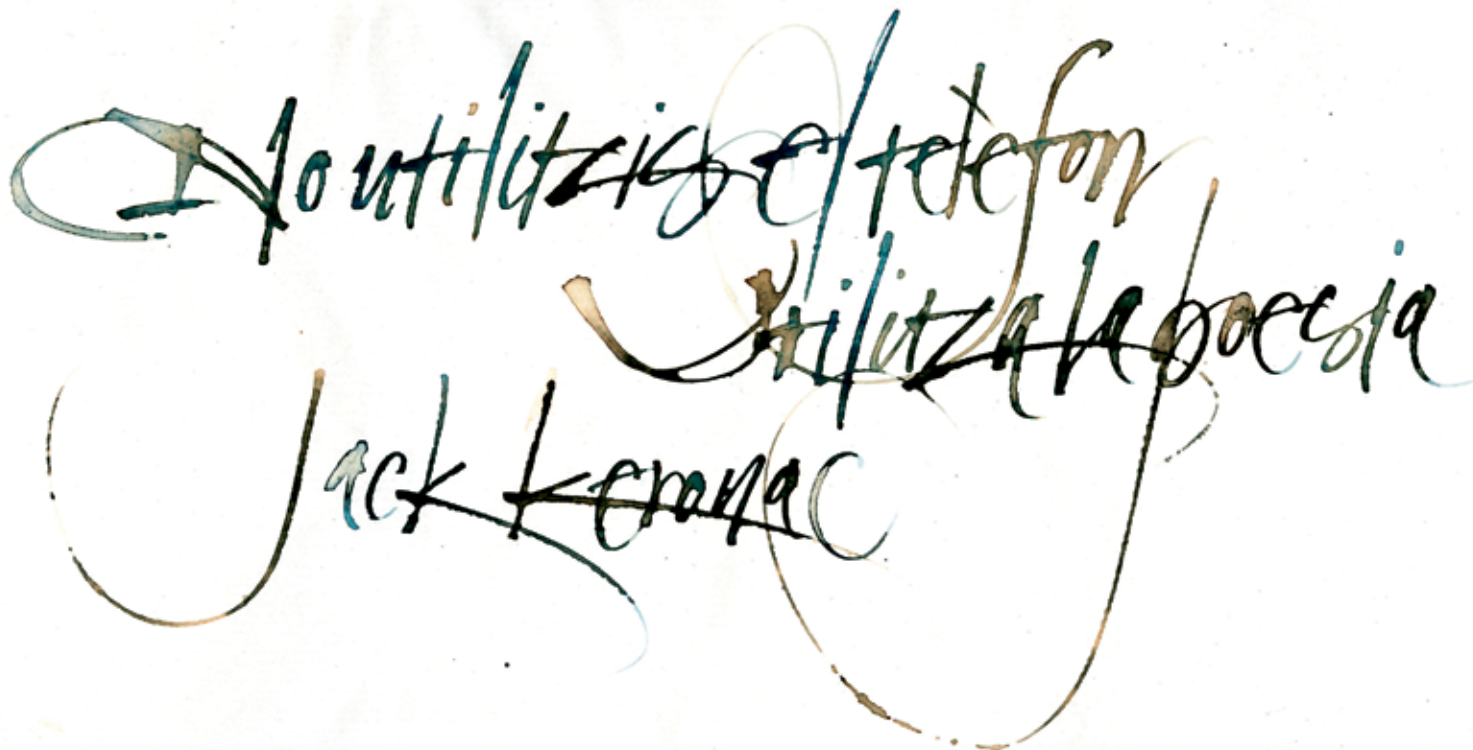 No utilitzis el telèfon
Utilitza la poesia
Jack Kerouac